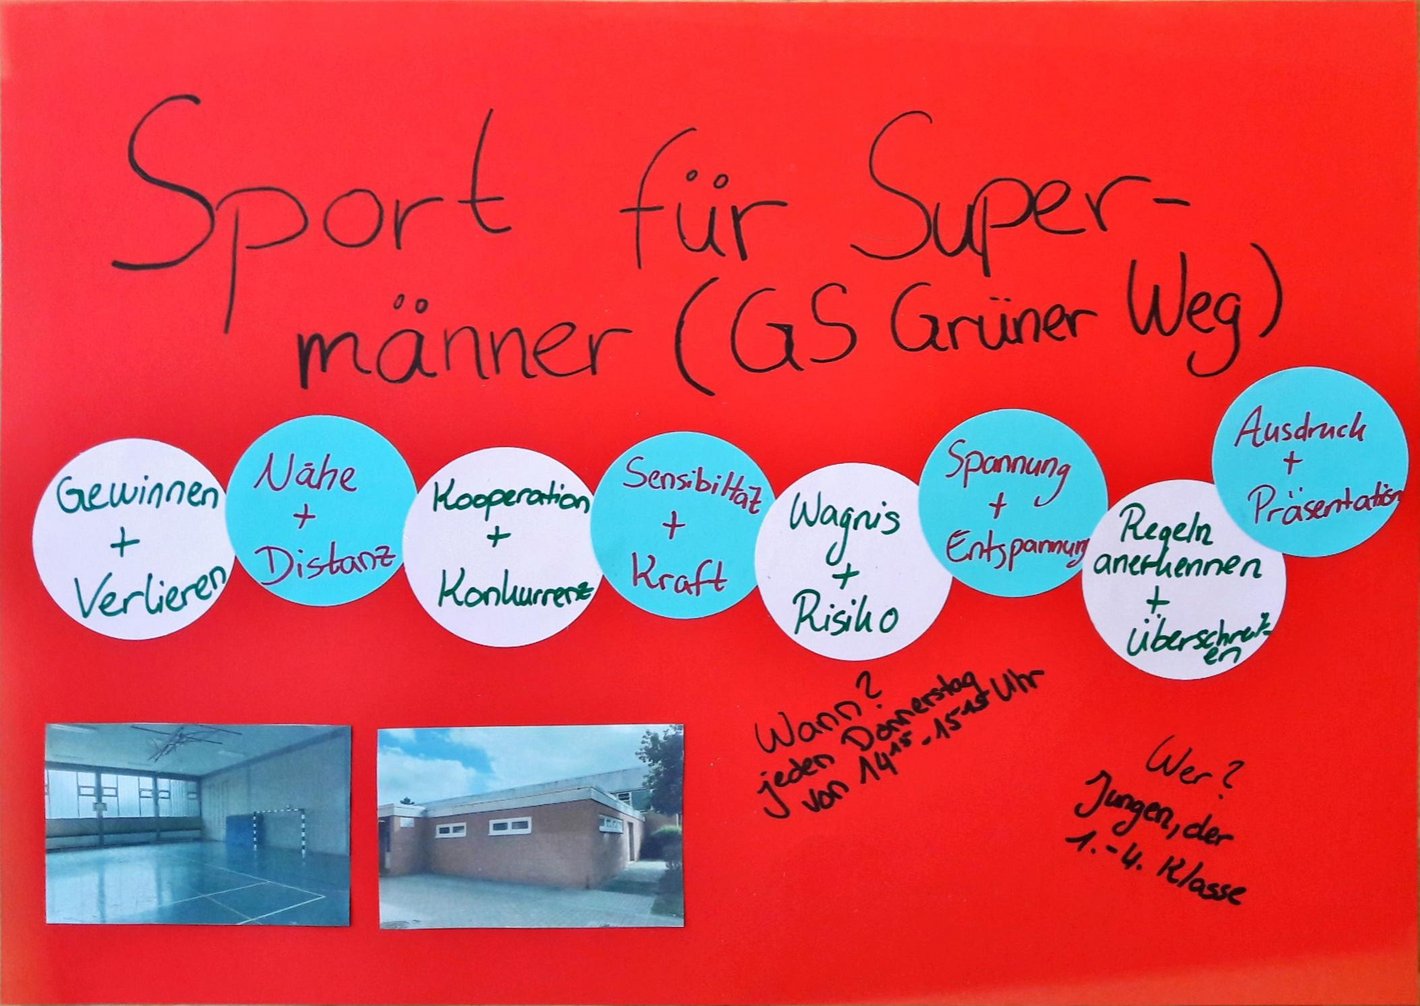 Sport für Super-
männer (GS Grüner Weg)
Gewinnen
+
Verlieren
Nähe
+
Distanz
Kooperation
+
Konkurrenz
Sensibiltät
+
Kraft
Wagnis
+
Risiko
Spannung
+
Entspannung
Regeln
anerkennen
+
Überschreit-
en
Ausdruck
+
Präsentation
Wann?
jeden Donnerstag
von 14¹⁵-15¹⁵ Uhr
Wer?
Jungen, der
1.-4. Klasse